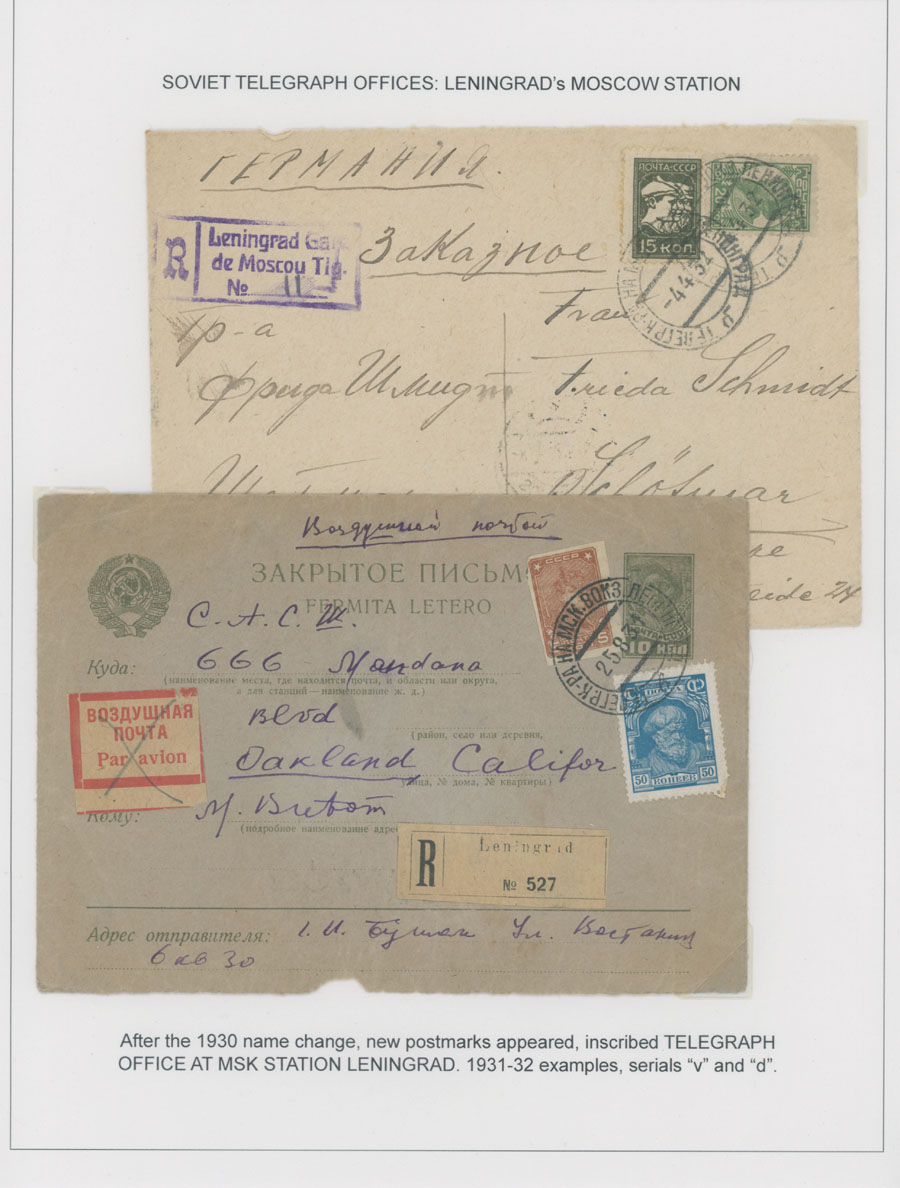 SOVIET TELEGRAPH OFFICES: LENINGRAD's MOSCOW STATION
ГЕРМАНИЯ.
ПОЧТА·СССР
15 КОП.
R
Leningrad Gare
de Moscou Tlg.
№ 11
Заказное
-4.4.32
гр-а
Frau
Фрида Шмидт
Frieda Schmidt
Schötmar
24
Воздушной почтой
ЗАКРЫТОЕ ПИСЬМО
FERMITA LETERO
СССР
С. А. С. Ш.
НА МСК. ВОКЗ. ЛЕНИНГРАД
25.8.31
10 КОП
Куда:
666 Mandana
(наименование места, где находится почта, и области или округа,
а для станций—наименование ж. д.)
Blvd
(район, село или деревня,
ВОЗДУШНАЯ
ПОЧТА
Par avion
Oakland Califor
улица, № дома, № квартиры)
50 КОПЕЕК 50
Кому:
М.
(подробное наименование адре
R
Leningrad
№ 527
Адрес отправителя:
Ул.
6 кв 30
After the 1930 name change, new postmarks appeared, inscribed TELEGRAPH
OFFICE AT MSK STATION LENINGRAD. 1931-32 examples, serials “v” and “d”.